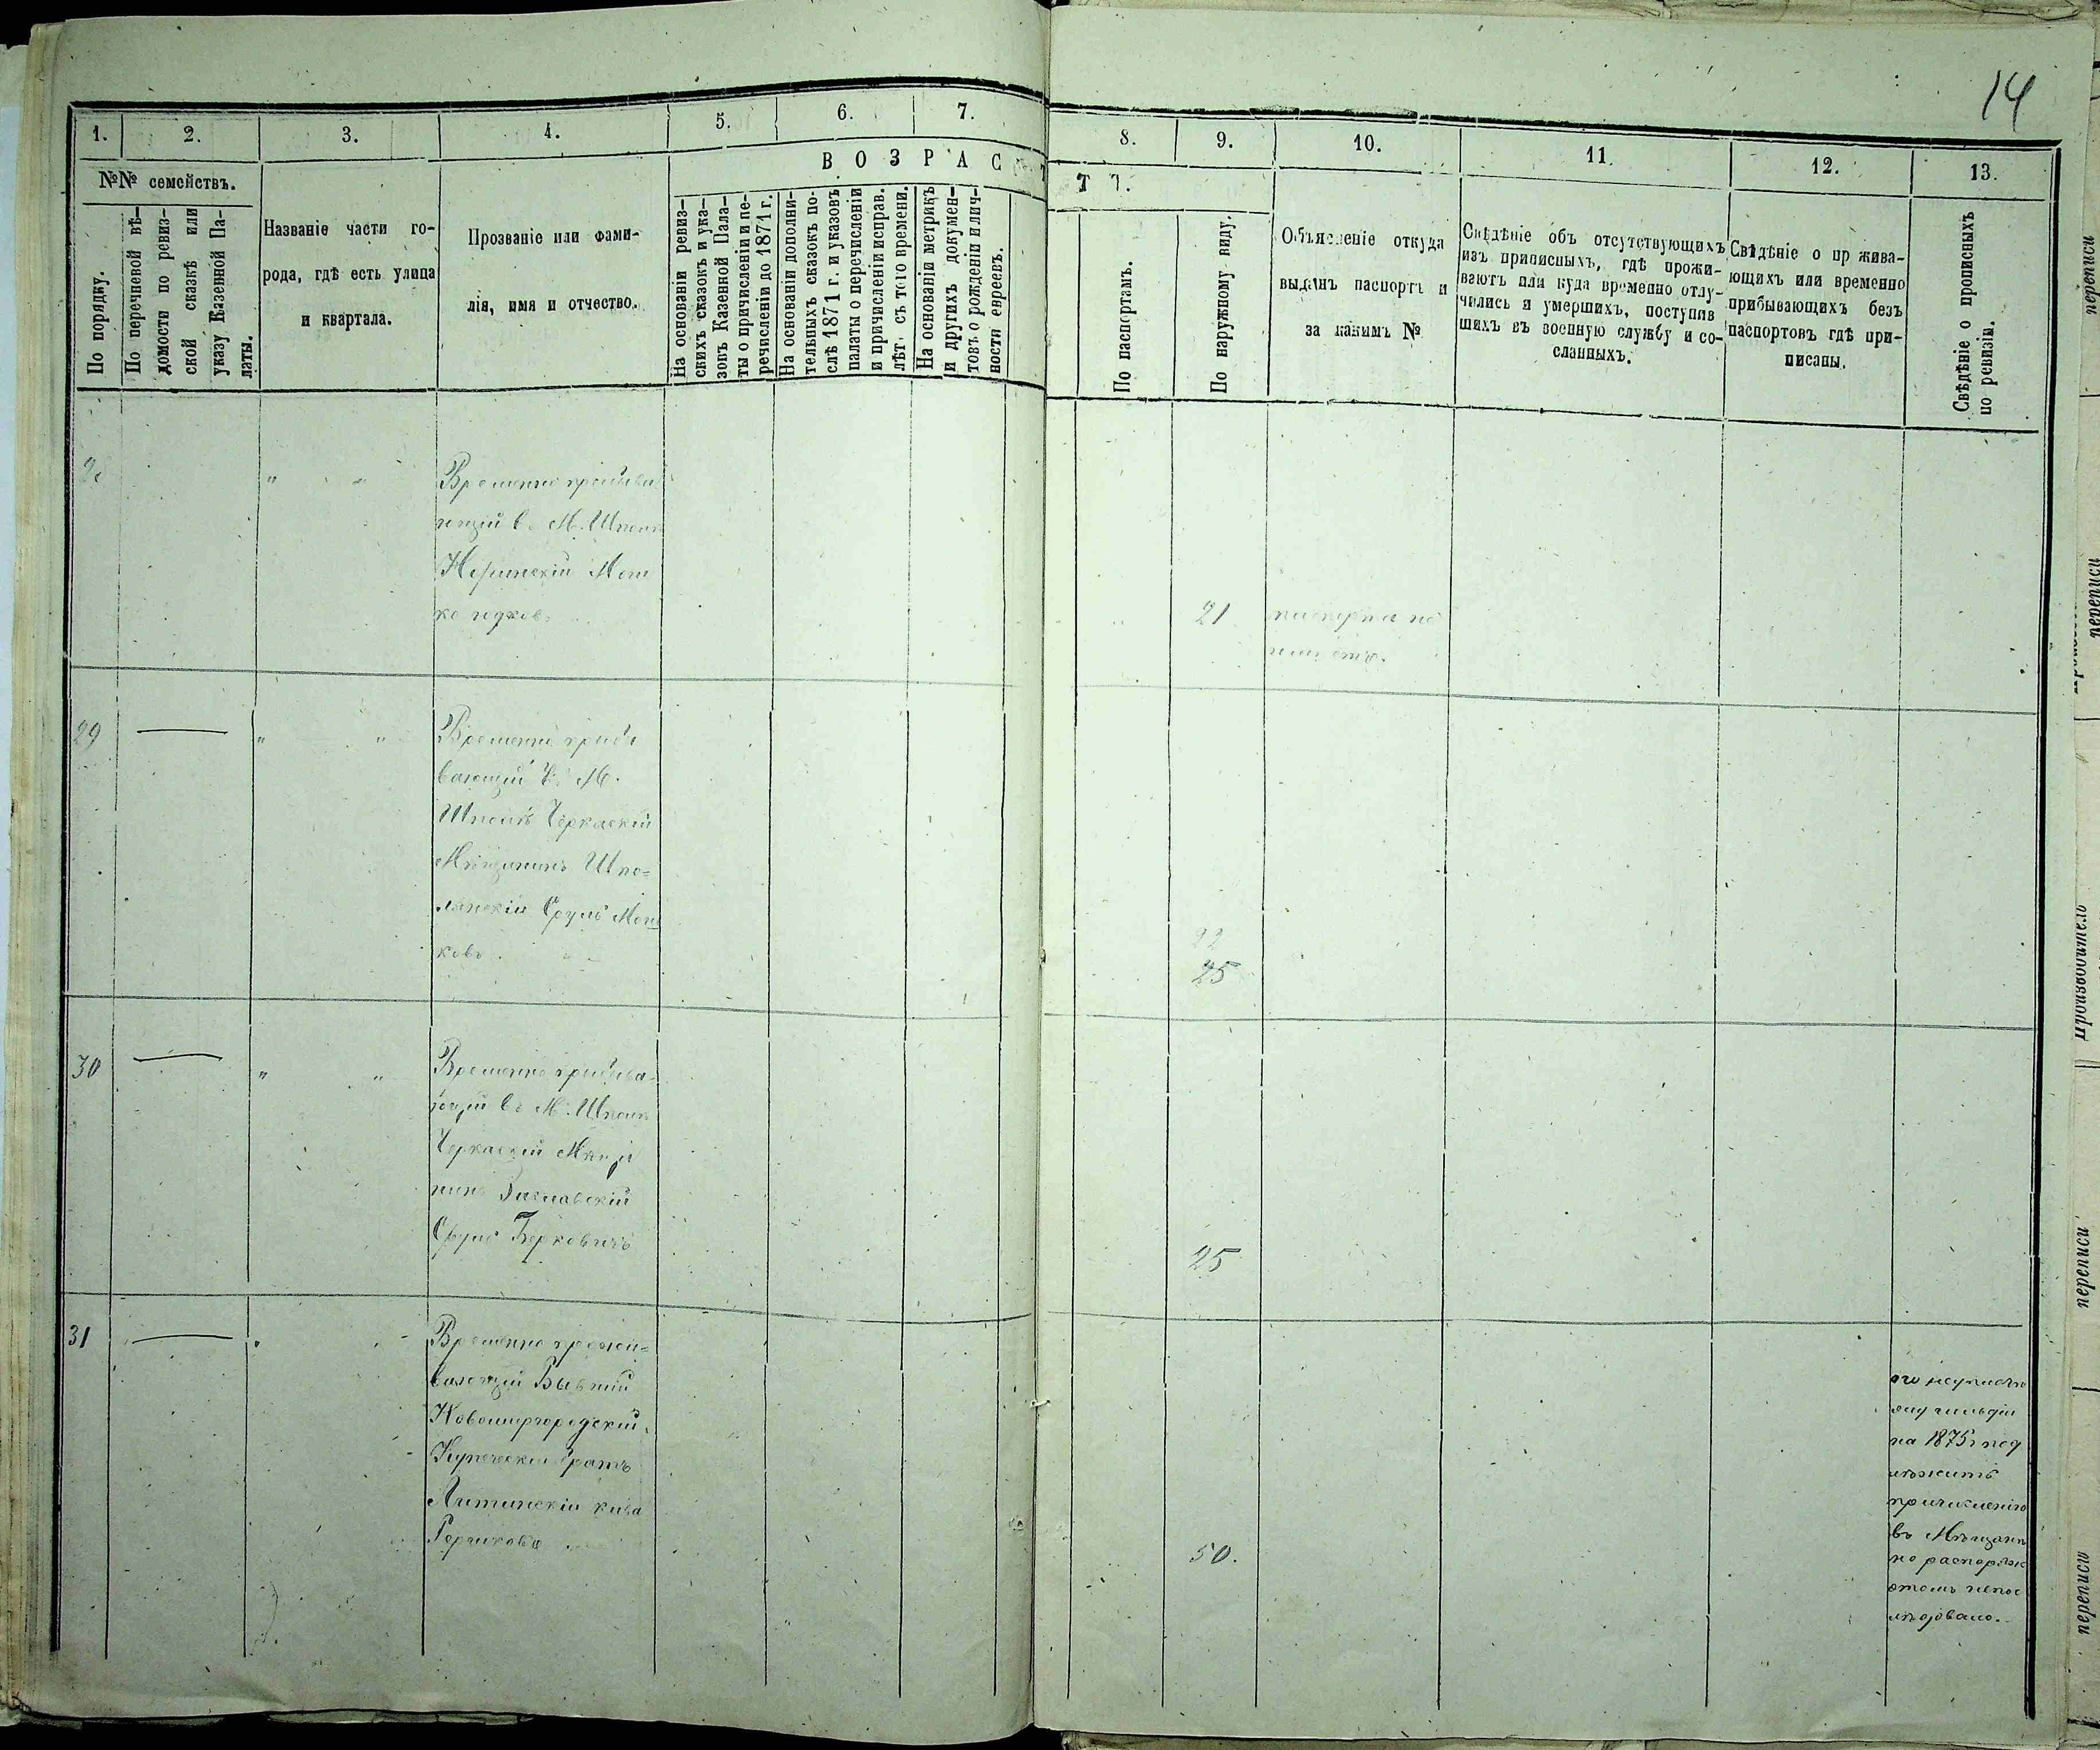 14
1. 2. 3. 4. 5. 6. 7. 8. 9. 10. 11. 12. 13.
№№ семействъ.
По порядку.
По перечневой вѣ-
домости по ревиз-
ской сказкѣ или
указу Казенной Па-
латы.
Названіе части го-
рода, гдѣ есть улица
и квартала.
Прозваніе или фами-
лія, имя и отчество.
ВОЗРАС
Т
На основаніи ревиз-
скихъ сказокъ и ука-
зовъ Казенной Пала-
ты о причисленіи и пе-
речисленіи до 1871 г.
На основаніи дополни-
тельныхъ сказокъ по-
слѣ 1871 г. и указовъ
палаты о перечисленіи
и причисленіи исправ.
лѣт. съ того времени.
На основаніи метрикъ
и другихъ докумен-
товъ о рожденіи и лич-
ности евреевъ.
По паспортамъ.
По наружному виду.
Объясненіе откуда
выданъ паспортъ и
за какимъ №
Свѣдѣніе объ отсутствующихъ
изъ приписныхъ, гдѣ прожи-
ваютъ или куда временно отлу-
чились и умершихъ, поступив
шихъ въ военную службу и со-
сланныхъ.
Свѣдѣніе о пр жива-
ющихъ или временно
прибывающихъ безъ
паспортовъ гдѣ при-
писаны.
Свѣдѣніе о прописныхъ
по ревизіи.
Временно пребыва
ющій въ М. Шполѣ
Мош
ко
21
паспорта не
29
Временно пребы
вающій въ М.
Шполѣ Черкаскій
Мѣщанинъ Шпо=
лянскій Сруль Мош
ковъ
22
25
30
Временно пребыва-
ющій въ М. Шполѣ
Черкаскій Мѣща
нинъ Заславскій
Сруль Берковичъ
25
31
Временно прожи=
вающій Бывшій
Новомиргородскій
Купеческій братъ
Литинскій Кива
Гершковъ
50.
на 1875 г под
лѣжитъ
причисленію
въ Мѣщане
но распоряж
о томъ непос
лѣдовало.
переписи
переписи
Производитель
переписи
переписи